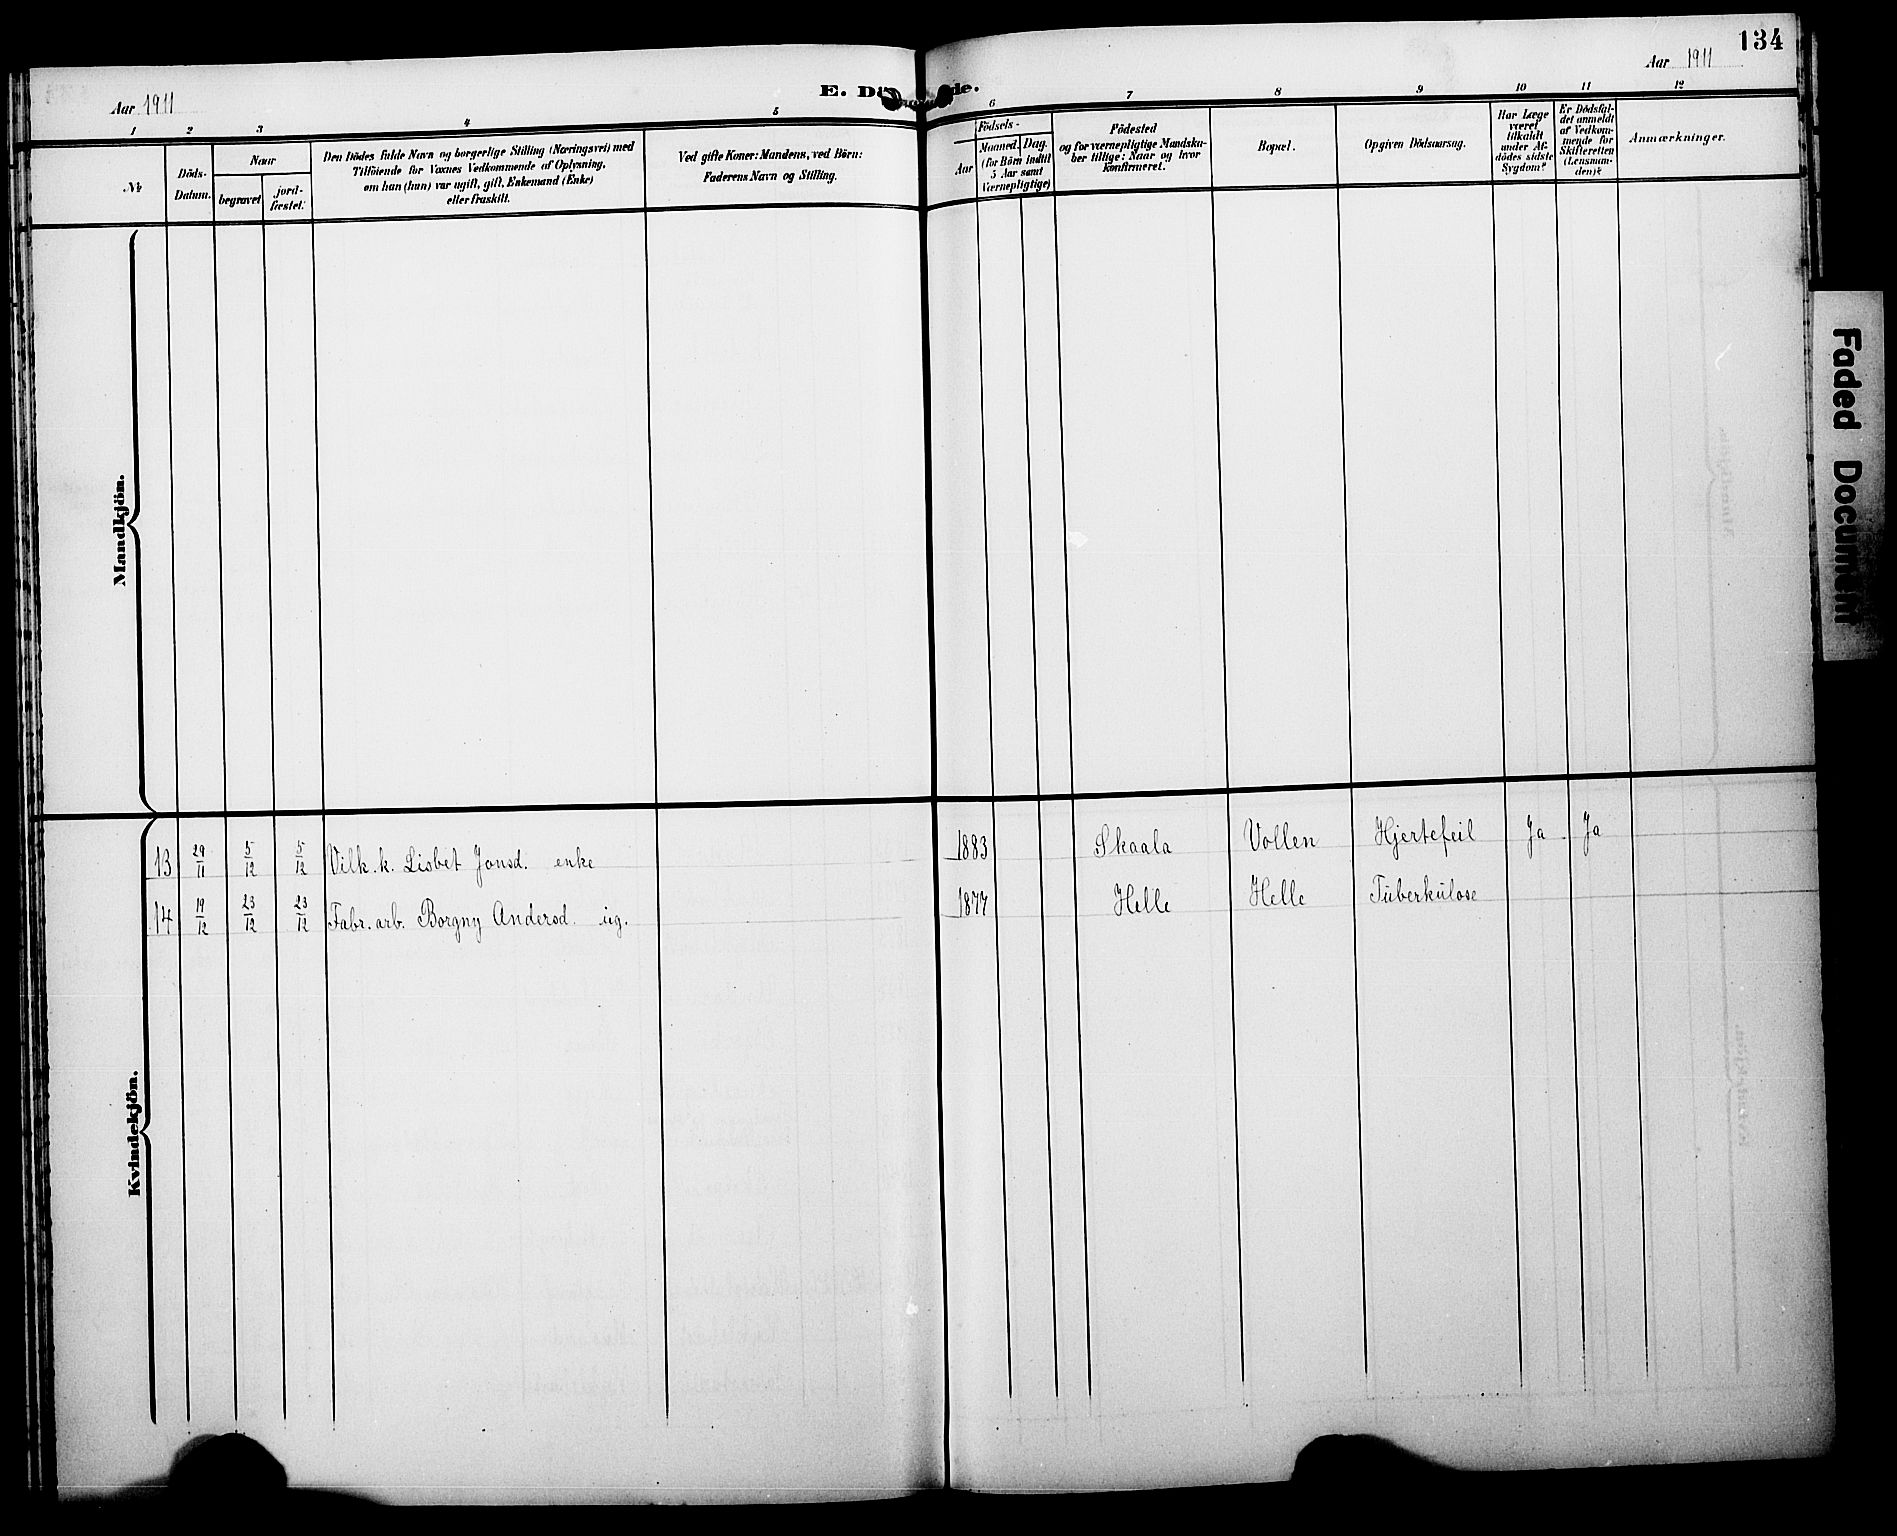 134
Aar 1911
E. Dö de.
Aar 1911
1 2 3 4 5 6 7 8 9 10 11 12
No
Döds-
Datum.
Naar
begravet
jord-
fæstet.
Den Dödes fulde Navn og borgerlige Stilling (Næringsvei) med
Tilföiende for Voxnes Vedkommende af Oplysning,
om han (hun) var ugift, gift, Enkemand (Enke)
eller fraskilt.
Ved gifte Koner: Mandens, ved Börn:
Faderens Navn og Stilling.
Födsels-
Aar
Maaned. Dag.
(for Börn indtil
5 Aar samt
Værnepligtige)
Födested
og for værnepligtige Mandska-
ber tillige: Naar og hvor
konfirmeret.
Bopæl.
Opgiven Dödsaarsag.
Har Læge
været
tilkaldt
under Af-
dödes sidste
Sygdom?
Er Dödsfal-
det anmeldt
af Vedkom-
mende for
Skifteretten
(Lensman-
den)?
Anmærkninger.
Mandkjön.
Kvindekjön.
13 29/11 5/12 5/12 Vilk. k. Lisbet Jonsd. enke 1883 Skaala Vollen Hjertefeil Ja Ja
14 19/12 23/12 23/12 Fabr. arb. Borgny Andersd. ug. 1877 Helle Helle Tuberkulose
Faded Document